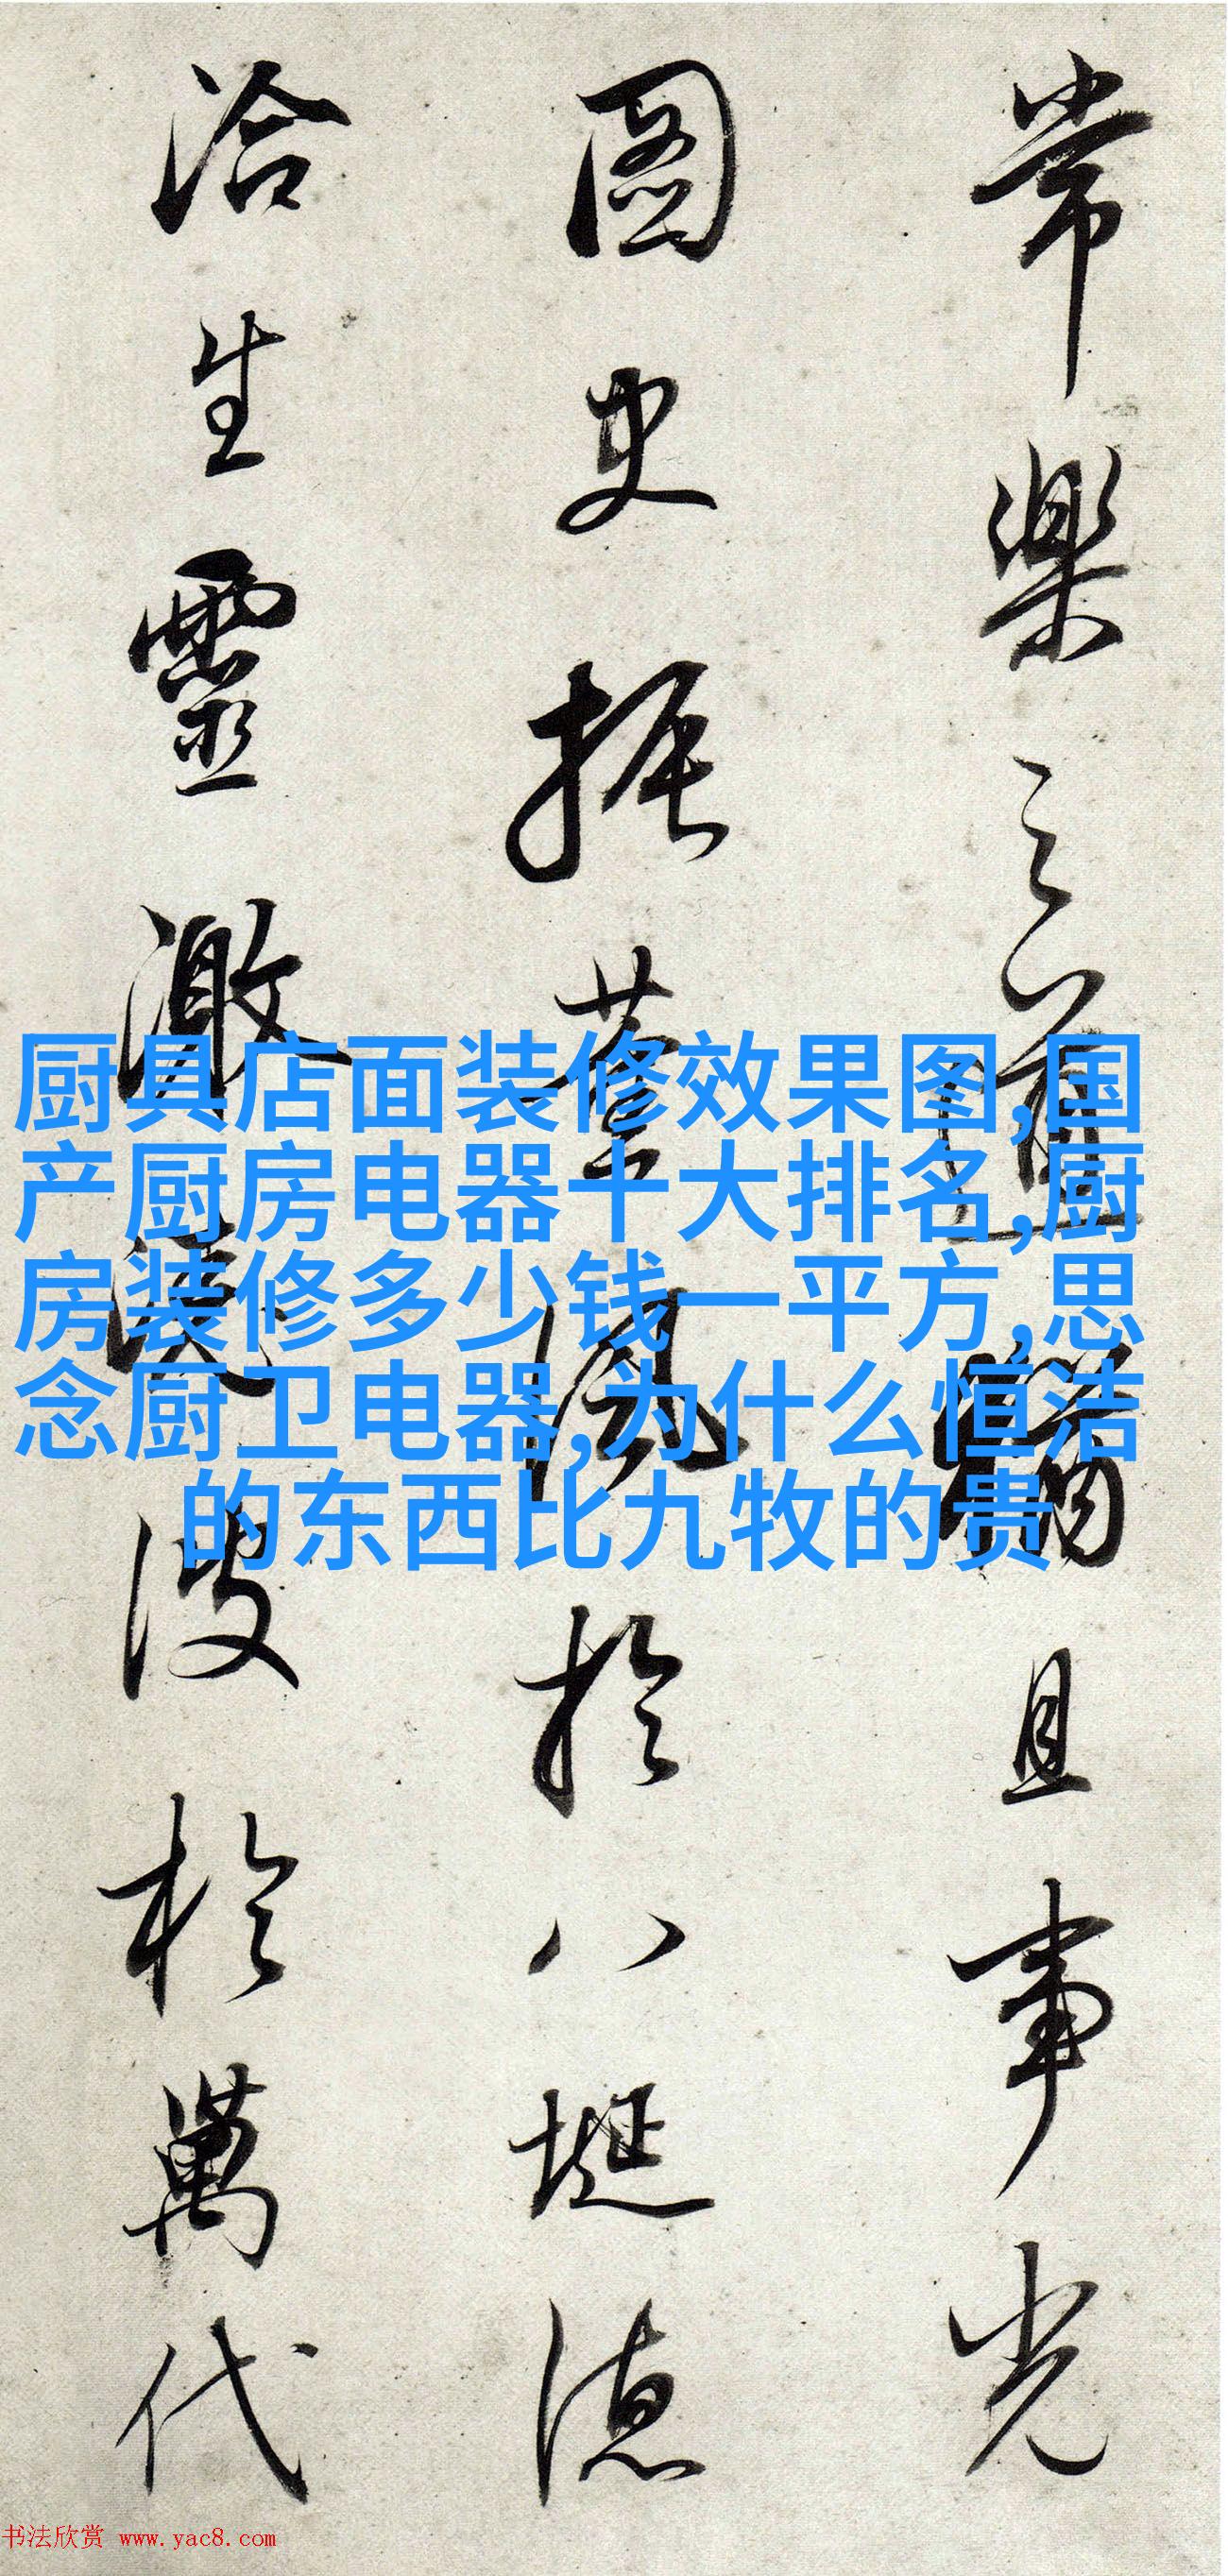 常樂之且事光
圖史振薫風於八埏德
洽生靈激波於萬代
厨具店面装修效果图,国
产厨房电器十大排名,厨
房装修多少钱一平方,思
念厨卫电器,为什么恒洁
的东西比九牧的贵
书法欣赏 www.yac8.com